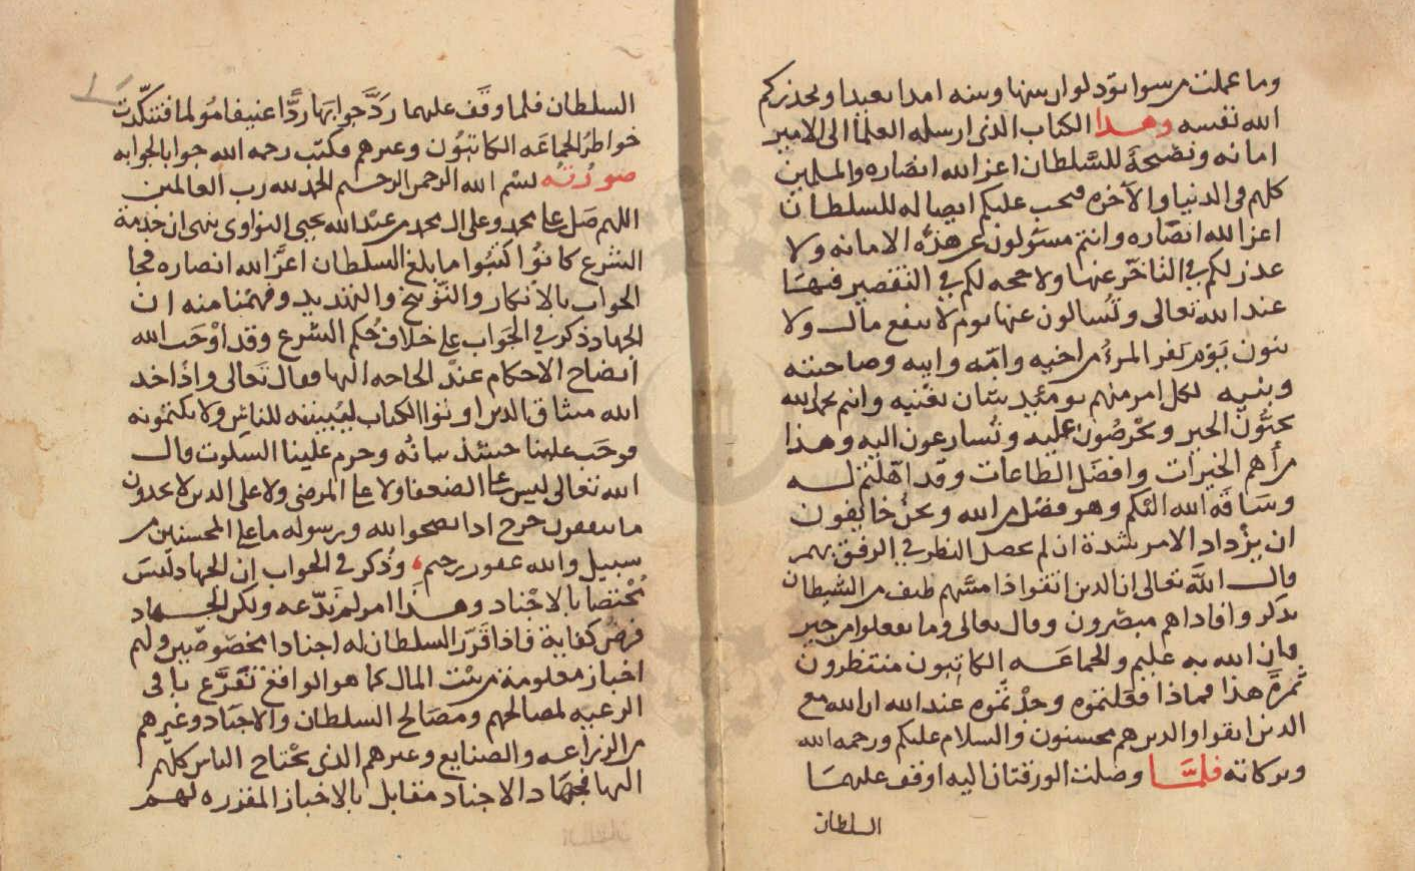 وما عملت من سوا تود لو ان بينها وبينه امدا بعيدا ويحذركم
الله نفسه وهذا الكتاب الذى ارسله العلما الى الامير
امانه ونصيحة للسلطان اعز الله انصاره والمسلمين
كلهم فى الدنيا والاخره فيجب عليكم ايصاله للسلطان
اعز الله انصاره وانتم مسئولون عن هذه الامانه ولا
عذر لكم فى التاخر عنها ولا حجه لكم فى التقصير فيها
عند الله تعالى وتسالون عنها يوم لا ينفع مال ولا
بنون يوم يفر المرء من اخيه وامه وابيه وصاحبته
وبنيه لكل امر منهم يومئيد شان يغنيه وانتم بحمد الله
تحبون الخير وتحرصون عليه وتسارعون اليه وهذا
من أهم الخيرات وافضل الطاعات وقد اهلتم له
وساقه الله اليكم وهو فضل من الله ونحن خايفون
ان يزداد الامر شدة ان لم يحصل النظر فى الرفق بهم
قال الله تعالى ان الدين اتقوا اذا مسهم طيف من الشيطان
تدكروا فاداهم مبصرون وقال تعالى وما تفعلوا من خير
فان الله به عليم والجماعه الكاتبون منتظرون
ثمرة هذا فماذا فعلتموه وجدتموه عند الله ان الله مع
الدين اتقوا والدين هم محسنون والسلام عليكم ورحمه الله
وبركاته فلما وصلت الورقتان اليه اوقف عليهما
السلطان
السلطان فلما وقف عليهما رد جوابها ردا عنيفا مولما فتنكدت
خواطر الجماعه الكاتبون وغيرهم فكتب رحمه الله جوابا لجوابه
صورته بسم الله الرحمن الرحيم الحمد لله رب العالمين
اللهم صل على محمد وعلى ال محمد من عبد الله يحيى النواوى ينهى ان خدمة
الشرع كانوا كتبوا ما بلغ السلطان اعز الله انصاره فجا
الجواب بالانكار والتوبيخ والتهديد وفهمنا منه ان
الجهاد ذكر فى الجواب على خلاف حكم الشرع وقد اوجب الله
ايضاح الاحكام عند الحاجه اليها فقال تعالى واذ اخد
الله ميثاق الدين اوتوا الكتاب ليبيننه للناس ولا يكتمونه
فوجب علينا حينئذ بيانه وحرم علينا السكوت قال
الله تعالى ليس على الضعفا ولا على المرضى ولا على الدين لا يجدون
ما ينفقون حرج ادا نصحوا لله ورسوله ما على المحسنين من
سبيل والله غفور رحيم وذكر فى الجواب ان الجهاد ليس
مختصا بالاجناد وهذا امر لم ندعه ولكن الجهاد
فرض كفاية فاذا قرر السلطان له اجنادا مخصوصين ولهم
اخباز معلومة من بيت المال كما هو الواقع تفرغ باقى
الرعيه لمصالحهم ومصالح السلطان والاجناد وغيرهم
من الزراعه والصنايع وغيرهم الذى يحتاج الناس كلهم
اليها فجهاد الاجناد مقابل بالاخباز المقرره لهم